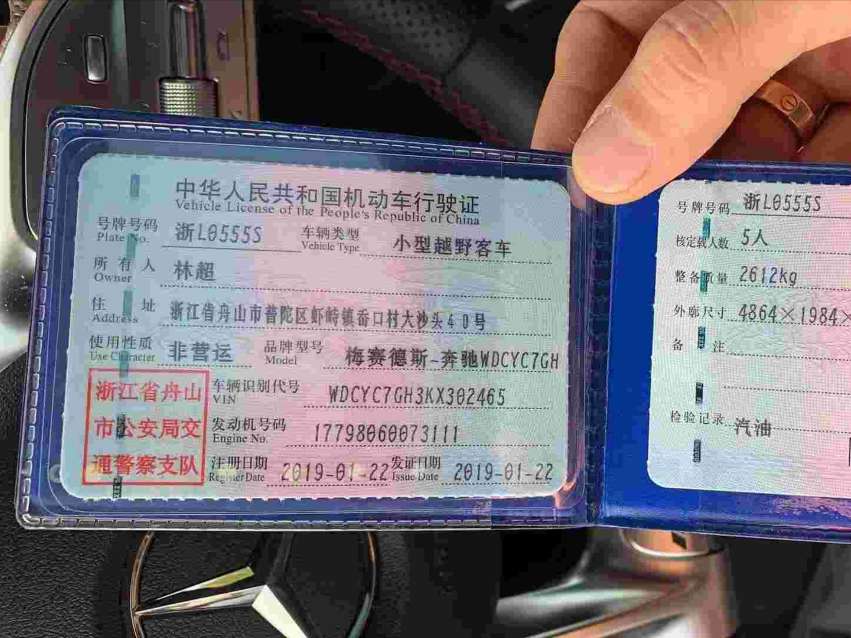 中华人民共和国机动车行驶证
Vehicle License of the People's Republic of China
号牌号码 浙L0555S 车辆类型 小型越野客车
Plate No. Vehicle Type
所有人 林超
Owner
住址 浙江省舟山市普陀区虾峙镇岙口村大沙头40号
Address
使用性质 非营运 品牌型号 梅赛德斯-奔驰WDCYC7GH
Use Character Model
浙江省舟山
市公安局交
通警察支队
车辆识别代号 WDCYC7GH3KX302465
VIN
发动机号码 17798060073111
Engine No.
注册日期 2019-01-22 发证日期 2019-01-22
Register Date Issue Date
号牌号码 浙L0555S
核定载人数 5人
整备质量 2612kg
外廓尺寸 4864×1984×
备注
检验记录 汽油